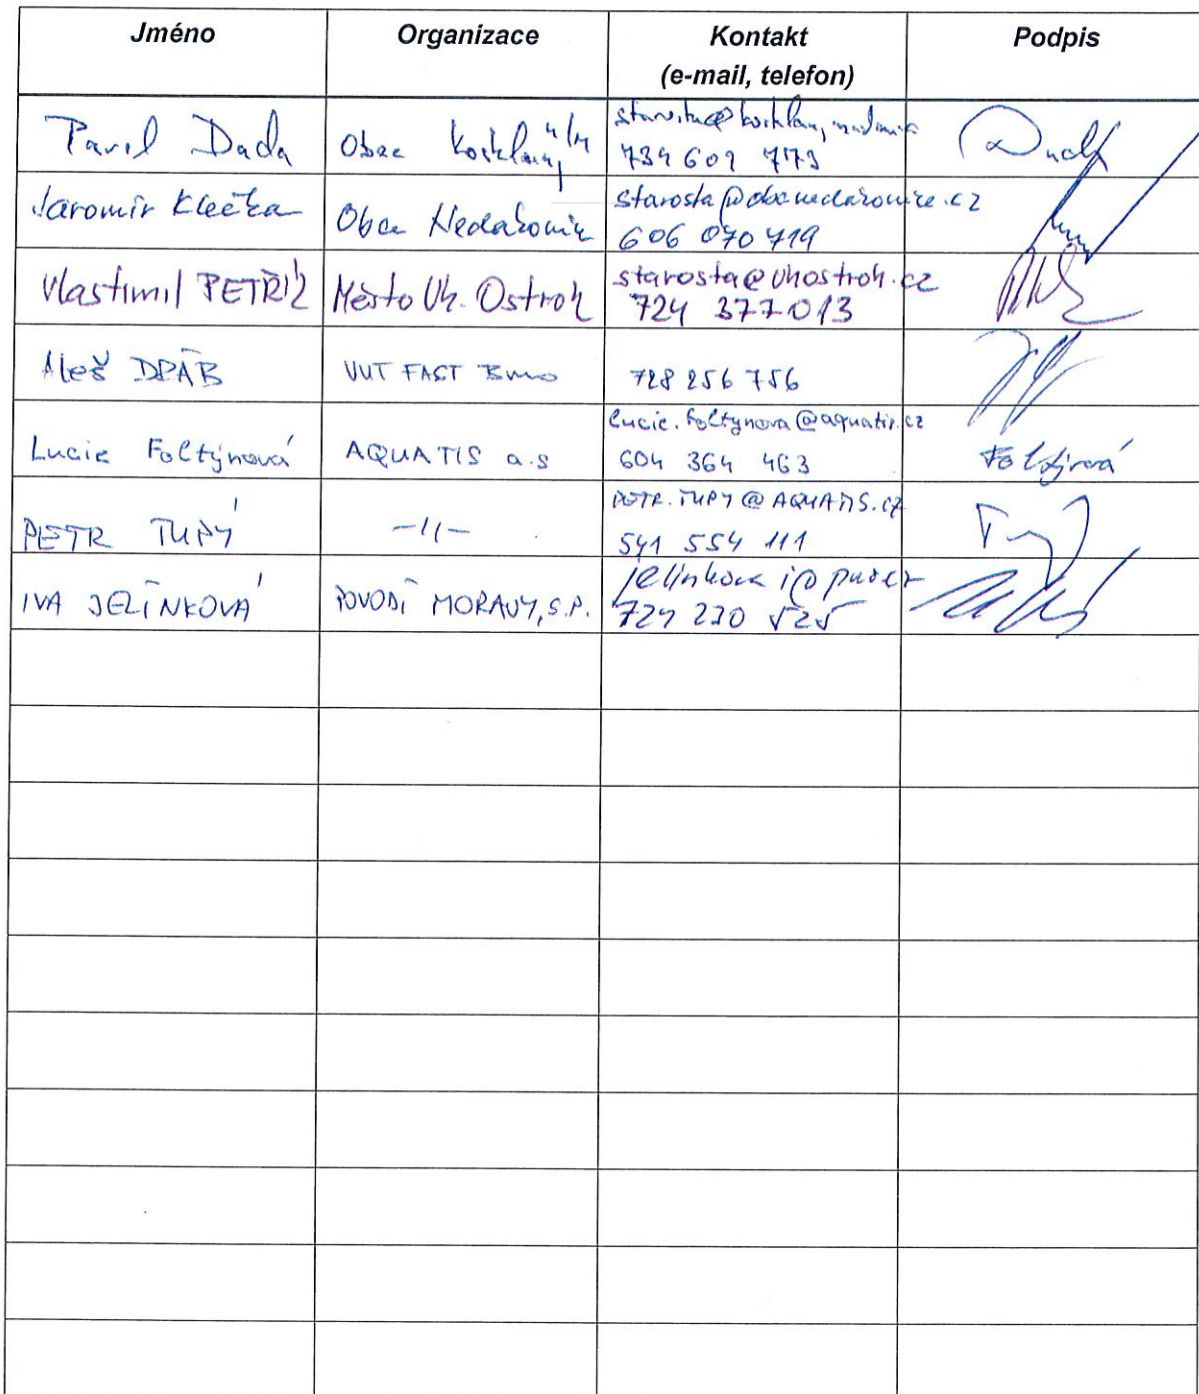 Jméno Organizace Kontakt Podpis
(e-mail, telefon)
Pavel Duda Obec n/M
734 609 773
Jaromír Klečka Obec Nedakonice starosta@obcnedakonice.cz
606 070 719
Vlastimil PETŘÍK Město Uh. Ostroh starosta@uhostroh.cz
724 377 013
Aleš DRÁB VUT FAST Brno 728 256 756
lucie.foltynova@aquatis.cz
Lucie Foltýnová AQUATIS a.s 604 364 463 Foltýnová
PETR.TUPY@AQUATIS.CZ
PETR TUPÝ -11- 541 554 111
IVA JELÍNKOVÁ POVODÍ MORAVY, S.P. jelinkova i@pmo.cz
724 230 525